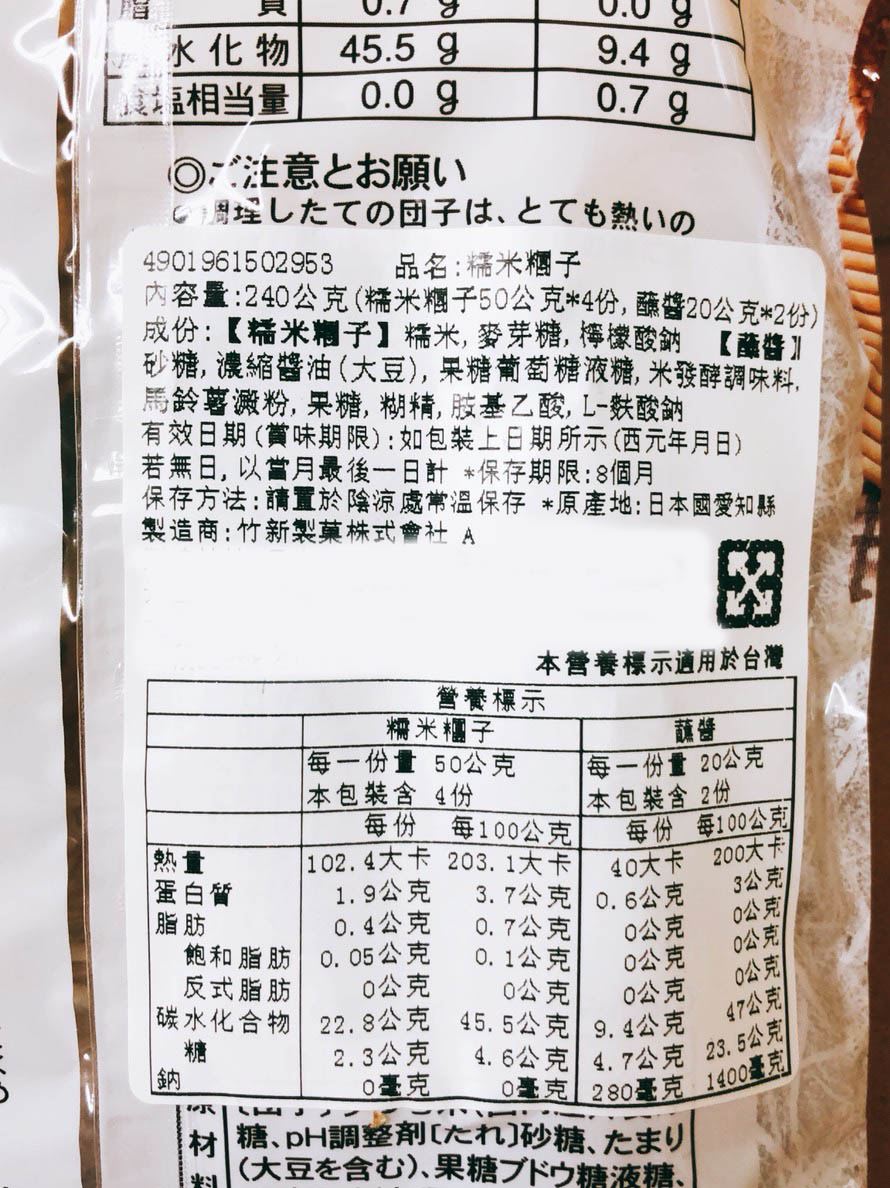 質 0.7 g 0.0 g
水化物 45.5 g 9.4 g
食塩相当量 0.0 g 0.7 g
◎ご注意とお願い
調理したての団子は、とても熱いの
4901961502953 品名:糯米糰子
內容量:240公克(糯米糰子50公克*4份,蘸醬20公克*2份)
成份:【糯米糰子】糯米,麥芽糖,檸檬酸鈉 【蘸醬】
砂糖,濃縮醬油(大豆),果糖葡萄糖液糖,米發酵調味料,
馬鈴薯澱粉,果糖,糊精,胺基乙酸,L-麩酸鈉
有效日期(賞味期限):如包裝上日期所示(西元年月日)
若無日,以當月最後一日計 *保存期限:8個月
保存方法:請置於陰涼處常溫保存 *原產地:日本國愛知縣
製造商:竹新製菓株式會社 A
本營養標示適用於台灣
營養標示
糯米糰子 蘸醬
每一份量 50公克 每一份量 20公克
本包裝含 4份 本包裝含 2份
每份 每100公克 每份 每100公克
熱量 102.4大卡 203.1大卡 40大卡 200大卡
蛋白質 1.9公克 3.7公克 0.6公克 3公克
脂肪 0.4公克 0.7公克 0公克 0公克
飽和脂肪 0.05公克 0.1公克 0公克 0公克
反式脂肪 0公克 0公克 0公克 0公克
碳水化合物 22.8公克 45.5公克 9.4公克 47公克
糖 2.3公克 4.6公克 4.7公克 23.5公克
鈉 0毫克 0毫克 280毫克 1400毫克
材 糖、pH調整剤〔たれ〕砂糖、たまり
料 (大豆を含む)、果糖ブドウ糖液糖、